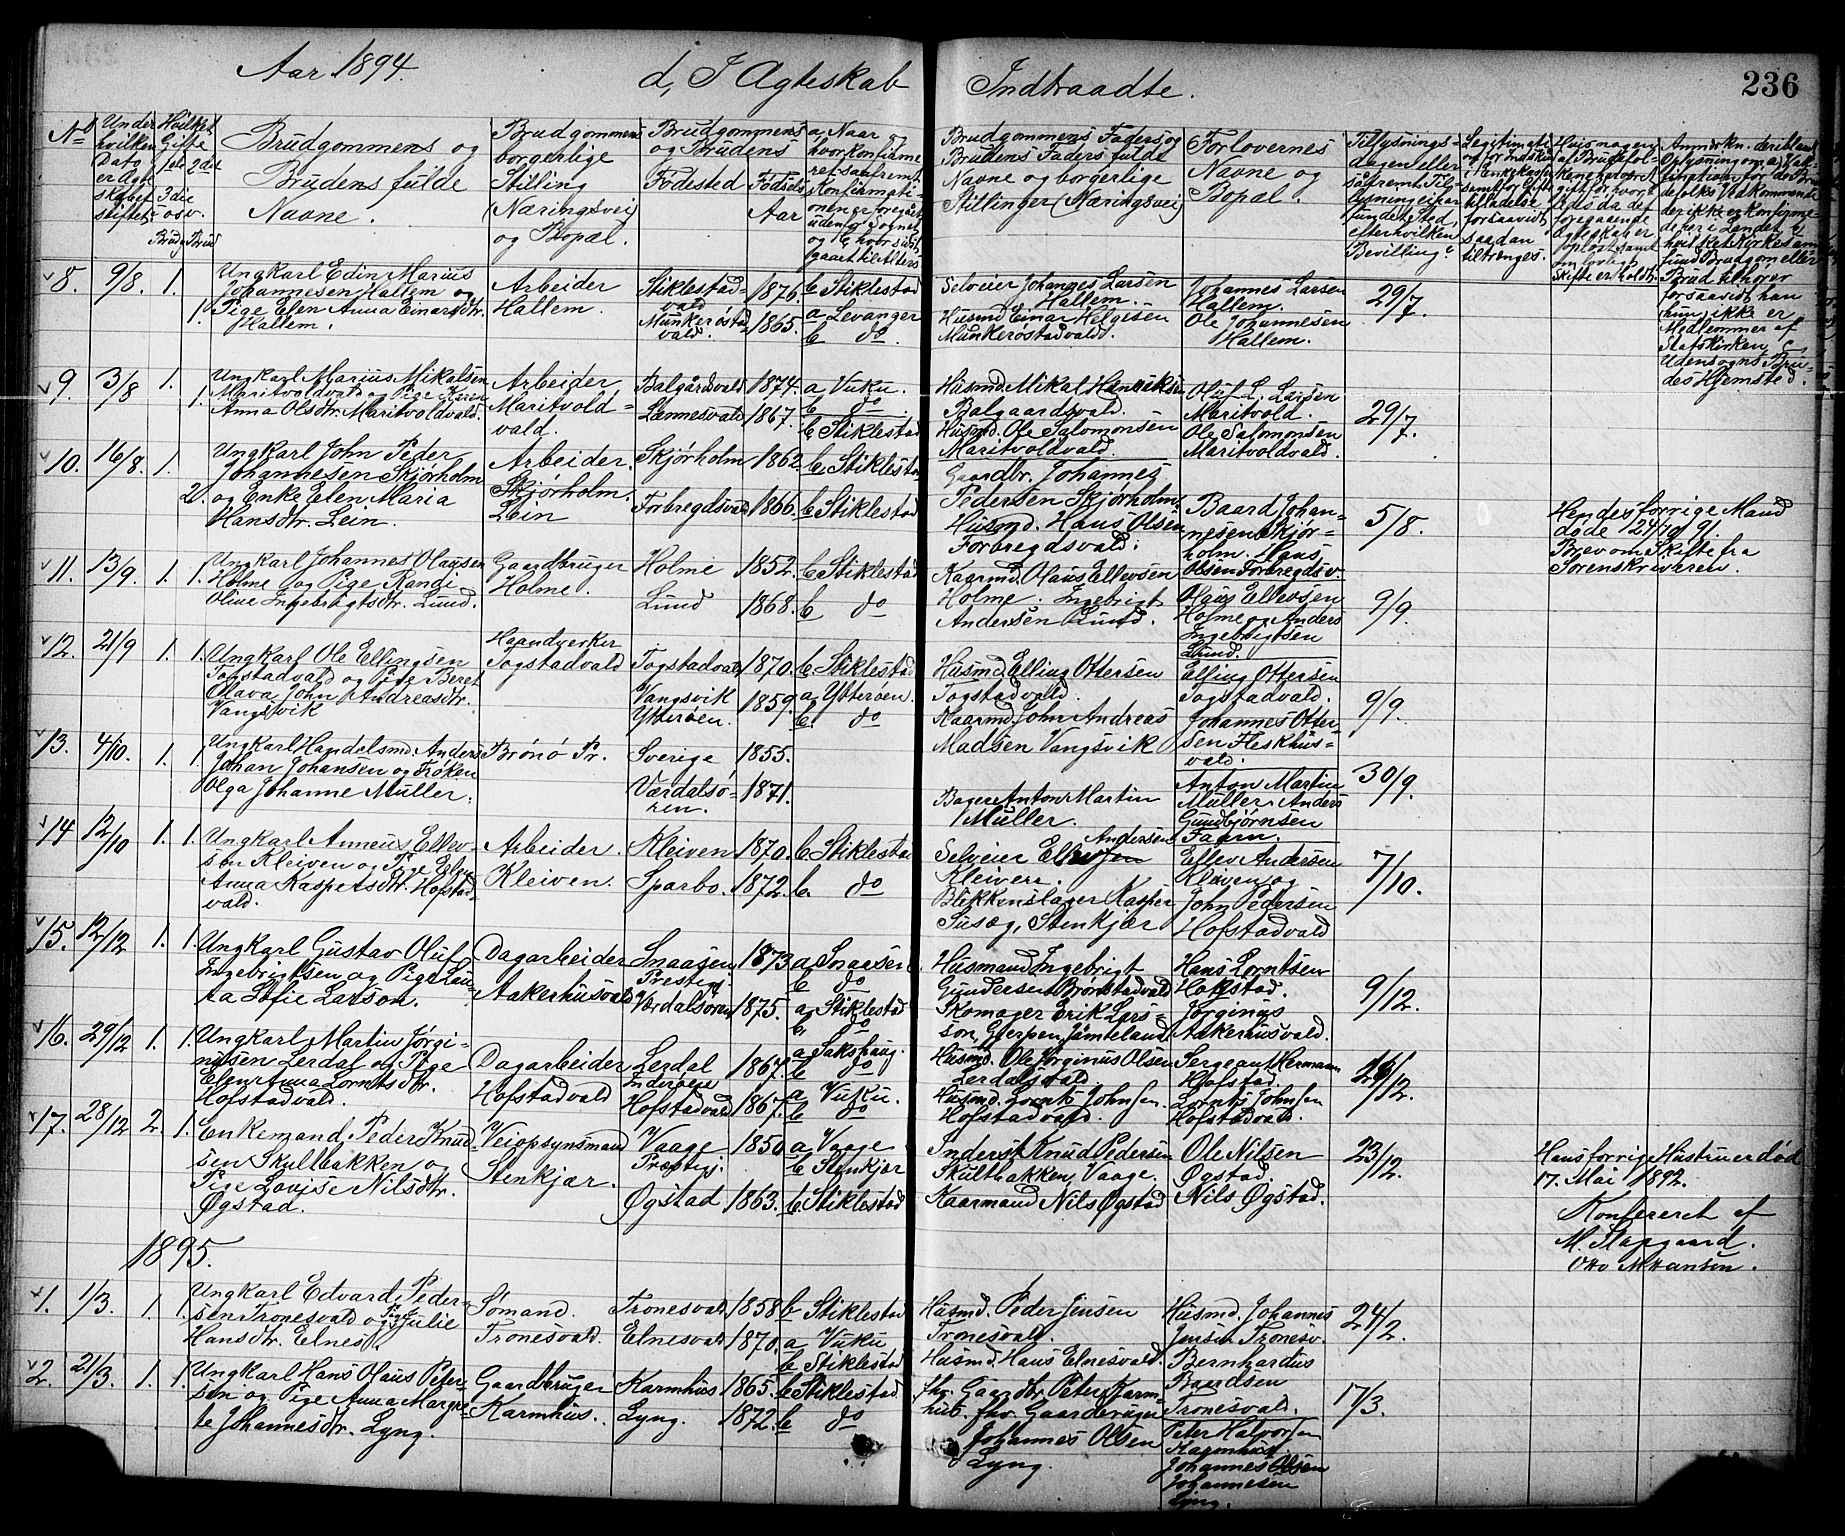 Aar 1894.
d, I Ægteskab Indtraadte.
236
No
Under hvilken Dato er Ægteskabet stiftet
Hvilket Gifte 1ste 2det 3die osv. Brudg. Brud
Brudgommens og Brudens fulde Navne.
Brudgommens borgerlige Stilling (Næringsvei) og Bopæl.
Brudgommens og Brudens Fødested Fødsels Aar
a, Naar og hvor konfirmeret
Brudgommens Faders og Brudens Faders fulde Navne og borgerlige Stillinger (Næringsvei)
Forlovernes Navne og Bopæl.
8. 9/8. 1. Ungkarl Edin Marius
Johannesen Hallem og
1. Pige Elen Anna Einarsdtr.
Hallem.
Arbeider
Hallem.
Stiklestad-
vald 1876. b Stiklestad
Munkerøstad
vald. 1865. a Levanger
b do.
Selveier Johannes Larsen
Hallem.
Husmd. Einar Helgesen
Munkerøstadvald.
Johannes Larsen
Hallem.
Ole Johannesen
Hallem.
29/7.
9. 3/8 1. Ungkarl Marius Mikalsen
1. Maritvoldvald og Pige Karen
Anna Olsdtr. Maritvoldvald.
Arbeider
Maritvold-
vald.
Balgårdsvald 1874. a Vuku.
b do
Lennesvald 1867. b Stiklestad
Husmd. Mikal Henriksen
Balgaardsvald.
Husmd. Ole Salomonsen
Maritvoldvald.
Oluf L. Larsen
Maritvold.
Ole Salomonsen
Maritvoldvald.
29/7.
10. 16/8. 1. Ungkarl John Peder
Johannesen Skjørholm
2. og Enke Elen Maria
Hansdtr. Lein.
Arbeider.
Skjørholm.
Lein
Skjørholm 1862. b Stiklestad
Forbregdsvald 1866. b Stiklestad
Gaardbr. Johannes
Pedersen Skjørholm
Husmd. Hans Olsen
Forbregdsvald.
Baard Johan-
nesen Skjør-
holm. Hans
Olsen Forbregdsv.
5/8.
Hendes forrige Mand
døde 24/10 91.
Brev om Skifte fra
Sorenskriveren.
11. 13/9. 1. 1. Ungkarl Johannes Olausen
Holme og Pige Randi
Oline Ingebrigtsdtr. Lund.
Gaardbruger
Holme.
Holme 1852. b Stiklestad
Lund 1868. b do
Kaarmd. Olaus Ellevsen
Holme. Ingebrigt
Andersen Lund.
Olaus Ellevsen
Holme og Anders
Ingebrigtsen
Lund.
9/9.
12. 21/9 1. 1. Ungkarl Ole Ellingsen
Togstadvald og Pige Beret
Olava John Andreasdtr.
Vangsvik
Haandverker
Togstadvald
Togstadvald 1870. b Stiklestad
Vangsvik
Ytterøen. 1859. a Ytterøen.
b. do
Husmd. Elling Ottersen
Togstadvald.
Kaarmd. John Andreas
Madsen Vangsvik
Elling Ottersen
Togstadvald.
Johannes Otter-
sen Fleskhus-
vald.
9/9.
13. 4/10. 1. 1. Ungkarl Handelsmd. Anders
Johan Johansen og Frøken
Olga Johanne Müller.
Brønø Pr.
Sverige 1855.
Værdalsø-
ren. 1871.
Bager Anton Martin
Müller.
Anton Martin
Müller. Anders
Gundbjørnsen
Faarn.
30/9.
14 12/10 1. 1. Ungkarl Anneus Ellev-
sen Kleiven og Pige Elen
Anna Kaspersdtr. Hofstad-
vald.
Arbeider.
Kleiven.
Kleiven 1870. b Stiklestad
Sparbo. 1872. b. do
Selveier Ellev Andersen
Kleiven.
Blikkenslager Kasper
Susæg, Stenkjær
Ellev Andersen
Kleiven og
John Pedersen
Hofstadvald
7/10.
15. 12/12 1. 1. Ungkarl Gustav Oluf
Ingebrigtsen og Pige Lau-
ra Sofie Larson.
Dagarbeider
Aakerhusvald
Snaasen
Prestegj. 1873 a Snaasen
b do
Værdalsøren 1875. a Stiklestad
b do
Husmand Ingebrigt
Gundersen Brønstadvald
Skomager Erik Lars-
son, Gjerpen, Jämteland
Hans Lorntsen
Hofstad.
Jørginus
Aakerhusvald.
9/12.
16. 29/12 1. 1. Ungkarl Martin Jørgi-
nusen Lerdal og Pige
Elen Anna Lorntsdtr.
Hofstadvald.
Dagarbeider
Hofstadvald
Lerdal
Inderøen 1867. a Sakshaug.
b do
Hofstadvald 1867. a Vuku.
b do
Husmd. Ole Jørginus Olsen
Lerdalsvald.
Husmd. Lornts Johnsen.
Hofstadvald.
Sergeant Hermann
Hofstad.
Lornts Johnsen
Hofstadvald.
17. 28/12 2. 1. Enkemand Peder Knud-
sen Skultbakken og
Pige Lovise Nilsdtr.
Øgstad.
Veiopsynsmand
Stenkjær.
Vaage
Præstegj. 1850 a Vaage
b Stenkjær
Øgstad 1863. b. Stiklestad
Inderst Knud Pedersen
Skultbakken, Vaage.
Kaarmand Nils Øgstad
Ole Nilsen
Øgstad
Nils Øgstad.
23/12.
Hans forrige Hustru er død
17. Mai 1892.
Konfereret af
M. Slapgaard.
Otto M Hansen.
1895.
1. 1/3. 1. 1. Ungkarl Edvard Peder-
sen Tronesvald og Pige Julie
Hansdtr. Elnes
Sømand.
Tronesvald.
Tronesvald 1858 b Stiklestad
Elnesvald 1870. a Vuku
b Stiklestad
Husmd. Peder Jensen
Tronesvald.
Husmd. Hans Elnesvald.
Husmd. Johannes
Jensen Tronesv.
Bernhardus
Baardsen
Tronesvald.
24/2.
2. 21/3. 1. 1. Ungkarl Hans Olaus Peter-
sen og Pige Anna Margre-
te Johannesdtr. Lyng.
Gaardbruger
Karmhus.
Karmhus 1865. b Stiklestad
Lyng. 1872. b do
fhv. Gaardbr. Peter Karm
hus. fhv. Gaardbruger
Johannes Olsen
Lyng.
Peter Halvorsen
Karmhus.
Johannes Olsen
Johannesen
Lyng.
17/3.